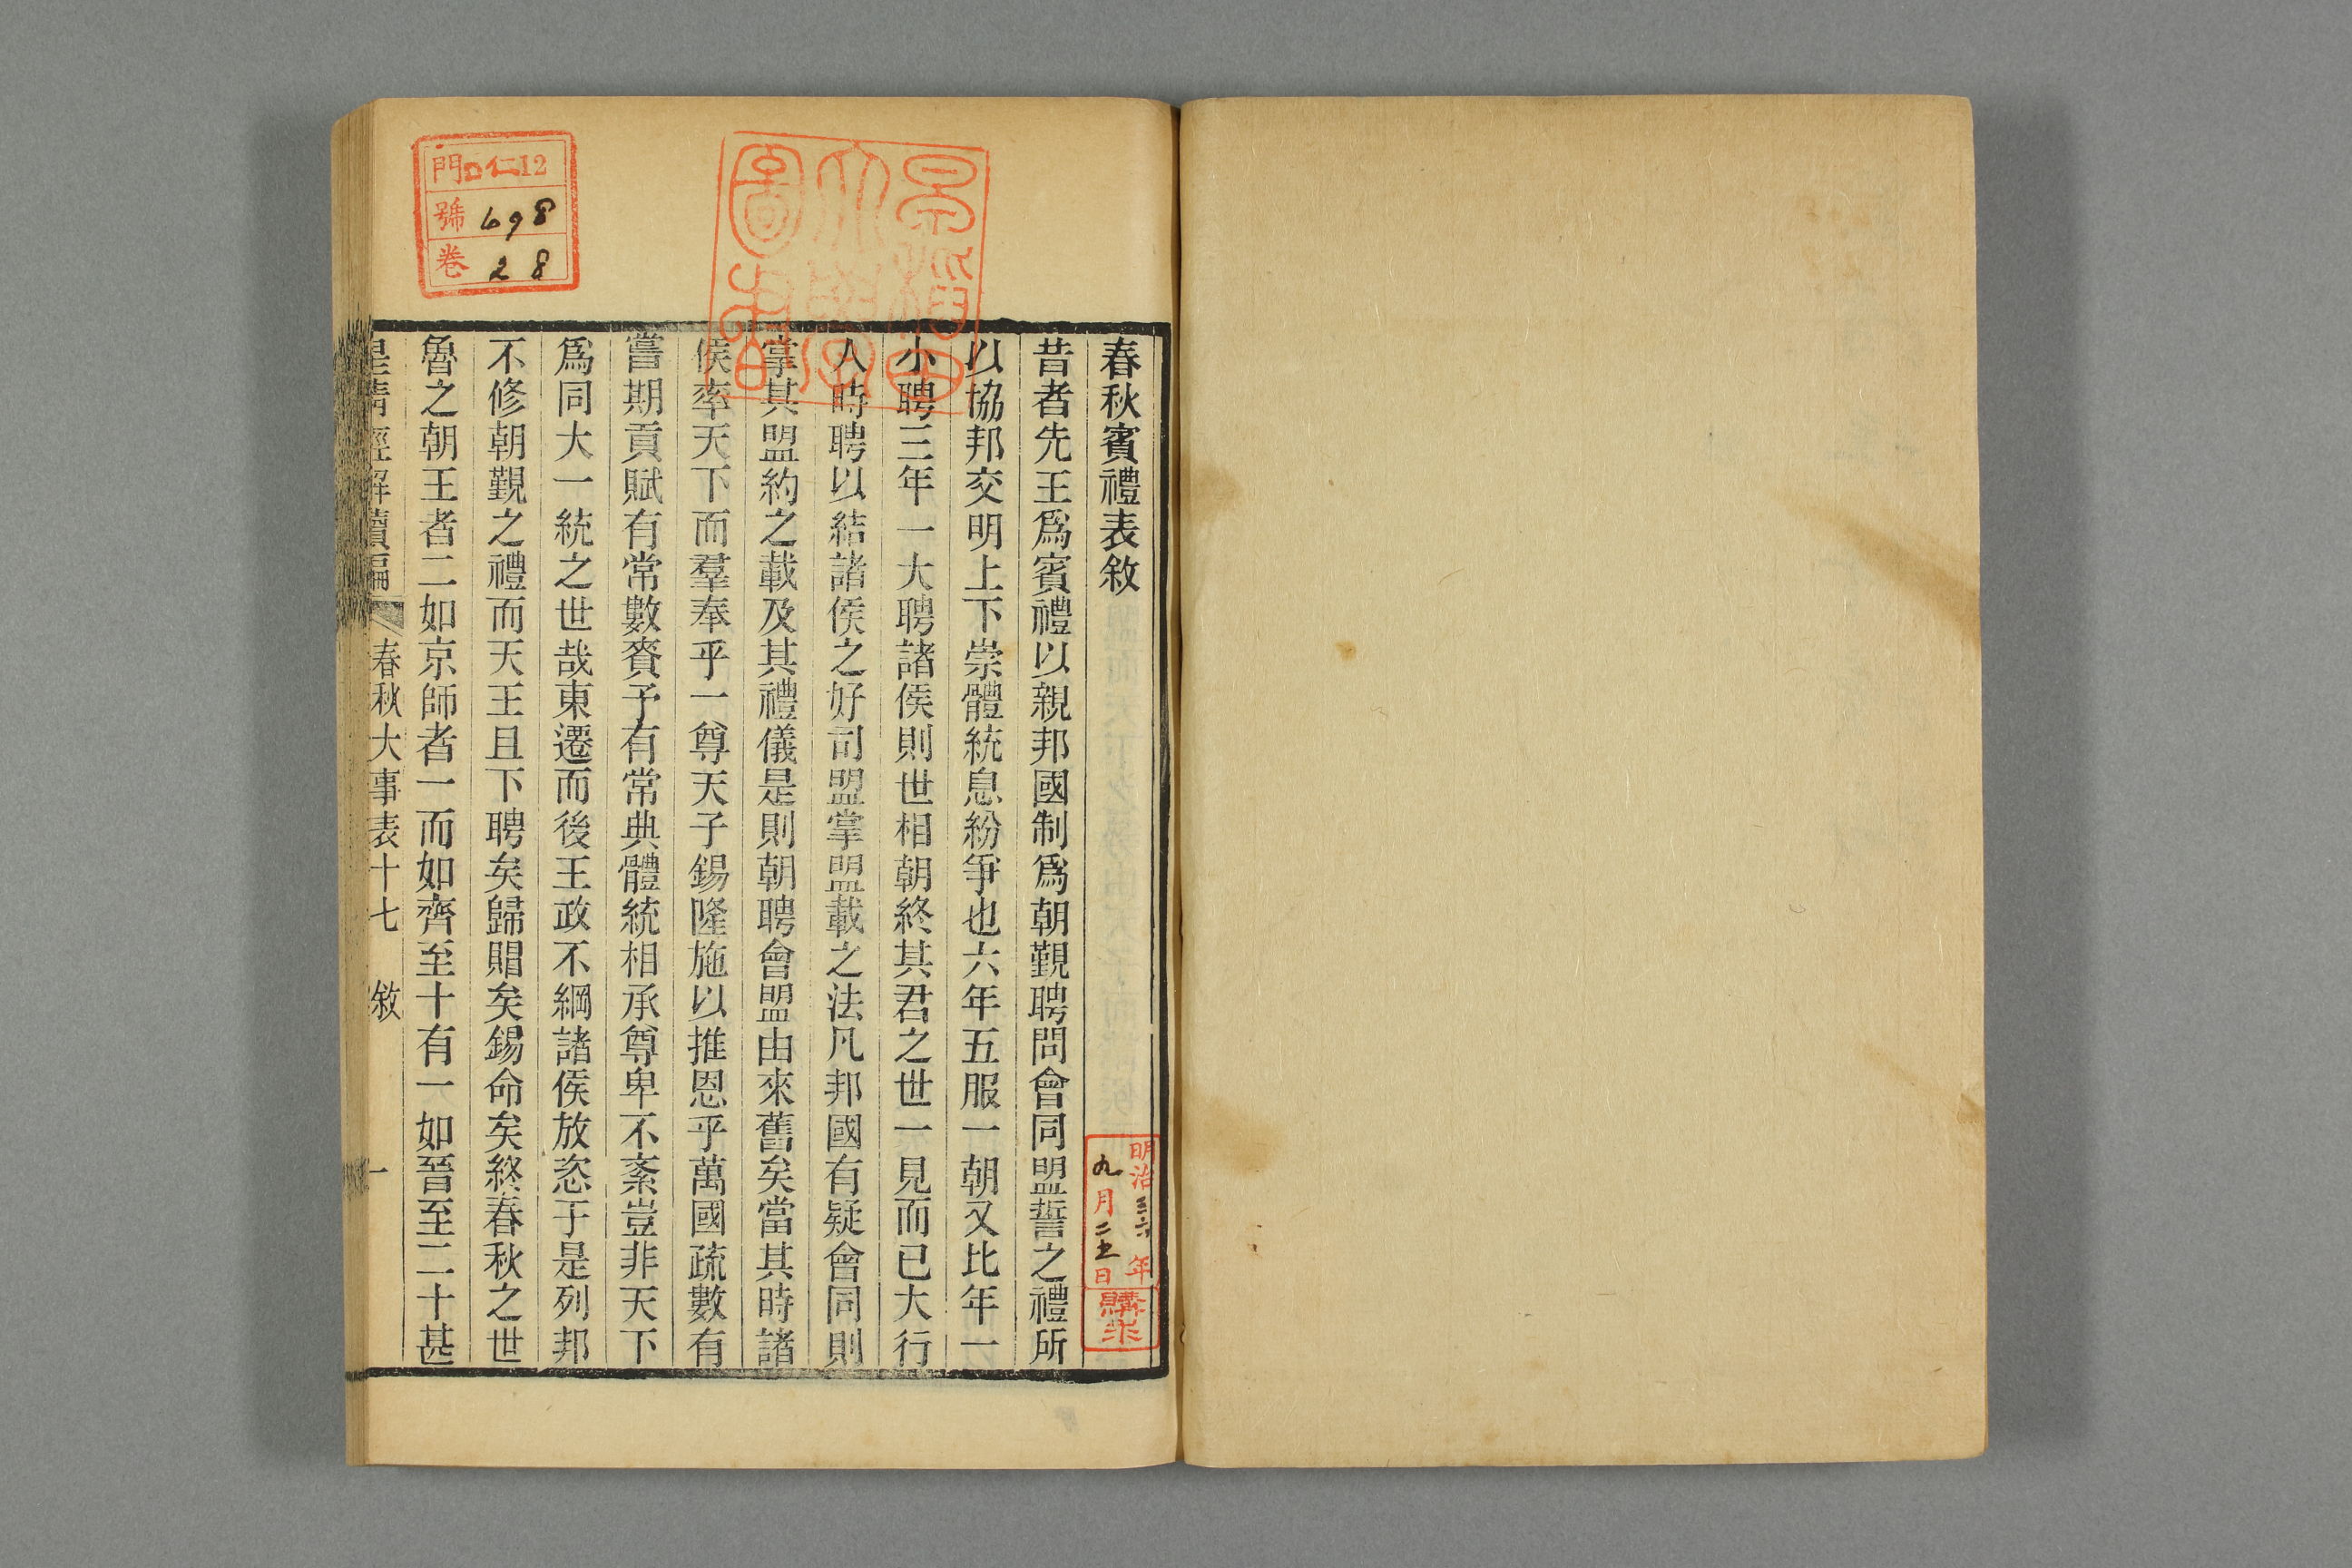 春秋賓禮表敘
昔者先王爲賓禮以親邦國制爲朝覲聘問會同盟誓之禮所
以協邦交明上下崇體統息紛爭也六年五服一朝又比年一
小聘三年一大聘諸侯則世相朝終其君之世一見而已大行
人時聘以結諸侯之好司盟掌盟載之法凡邦國有疑會同則
掌其盟約之載及其禮儀是則朝聘會盟由來舊矣當其時諸
侯率天下而羣奉乎一尊天子錫隆施以推恩乎萬國疏數有
嘗期貢賦有常數賚予有常典體統相承尊卑不紊豈非天下
爲同大一統之世哉東遷而後王政不綱諸侯放恣于是列邦
不修朝覲之禮而天王且下聘矣歸賵矣錫命矣終春秋之世
魯之朝王者二如京師者一而如齊至十有一如晉至二十甚
皇清經解續編
春秋大事表十七 敘
一
早稻田
大學
圖書
門 ロ仁12
號 698
卷 28
明治三六年
九月二五日
購求